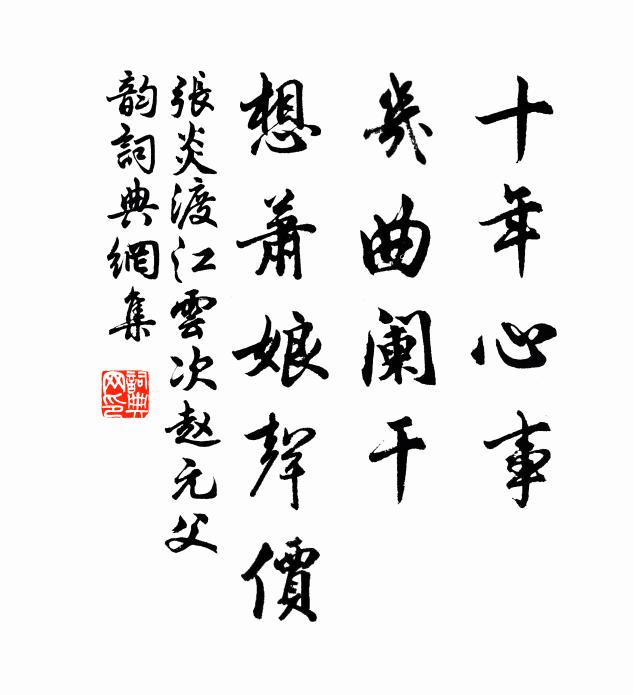 十年心事
幾曲阑干
想蕭娘聲價
張炎渡江雲次赵元父
韵詞典網集
詞典网印